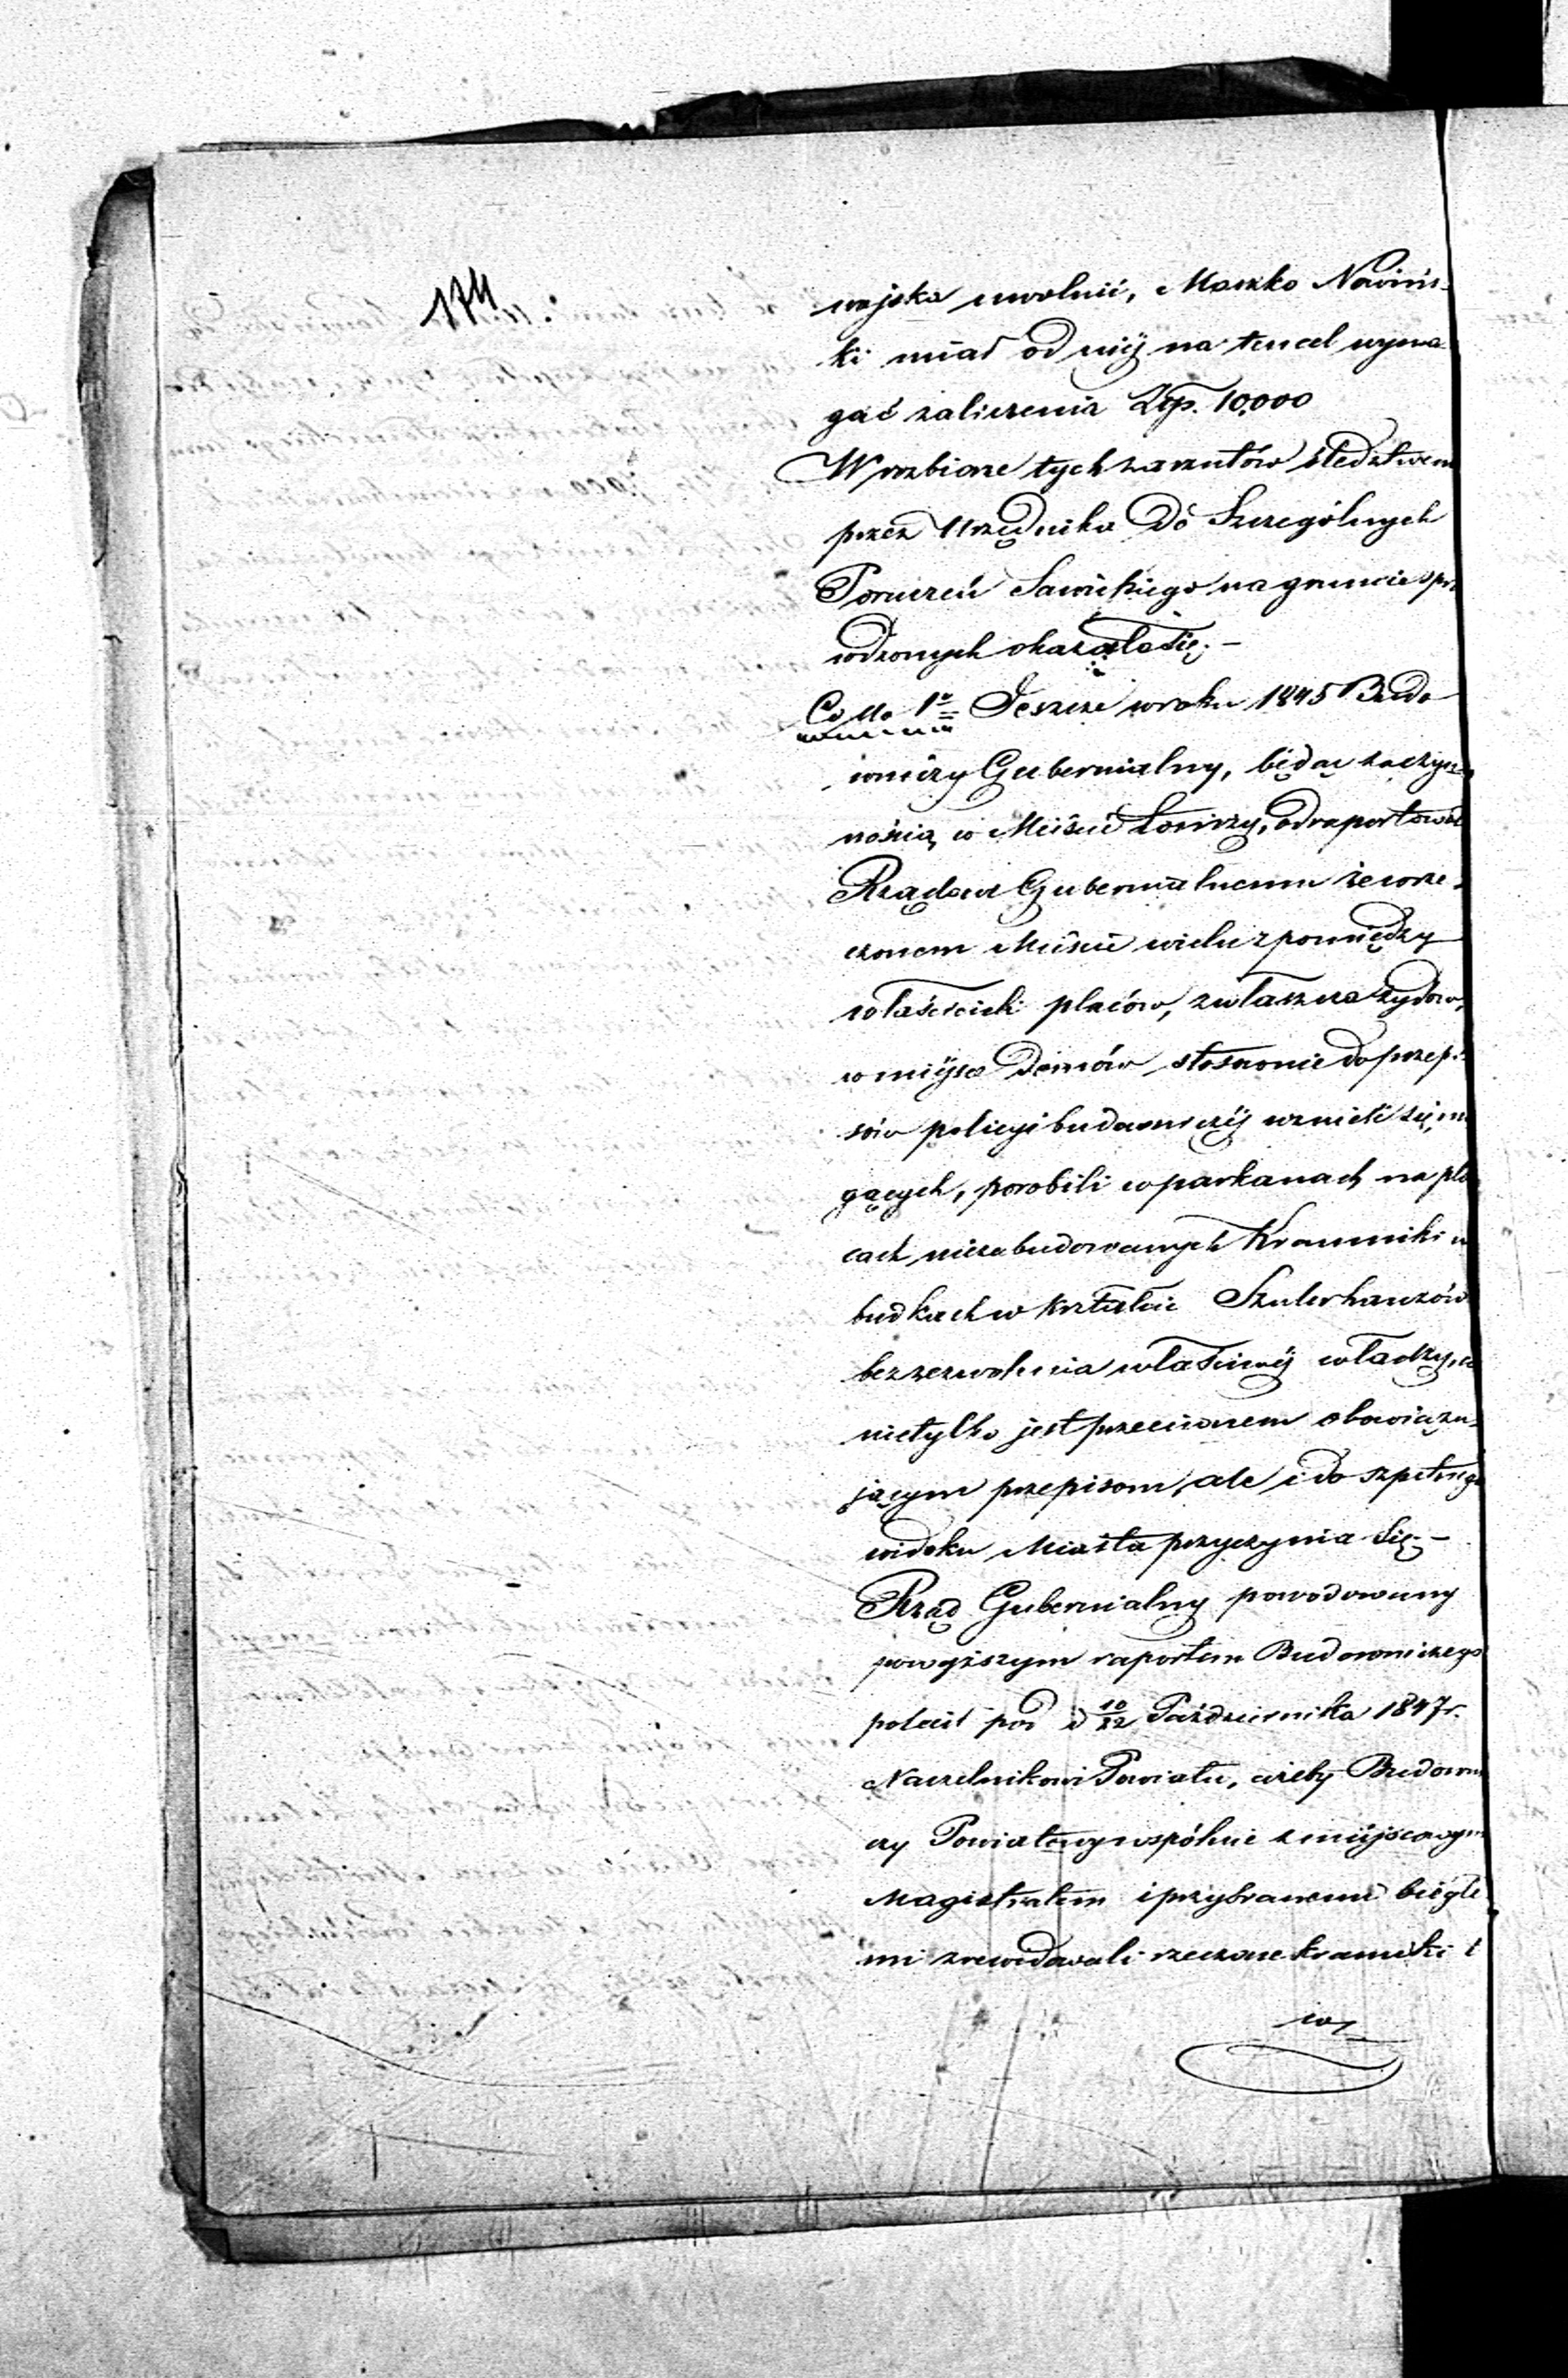 174
wojska uwolnić, Moszko Nowińs-
ki miał od niéj na ten cel wyma
gać zaliczenia Złp. 10,000
W rozbiorze tych zarzutów śledztwem
przez Urzędnika do Szczególnych
Poruczeń Sawickiego na gruncie spra
wdzonych okazało się:—
Co do 1º Jeszcze w roku 1845 Budo
wniczy Gubernialny, będąc za czyn-
nością w Mieście Łomży, odraportował
Rządowi Gubernialnemu że w rze-
czonem Mieście wielu z pomiędzy
właścicieli placów, zwłaszcza żydów,
w miejsce domów stosownie do przepi-
sów policyi budowniczéj wznieść się ma
gących, porobili w parkanach na pla
cach niezabudowanych Kramniki w
budkach w kształcie Szulerhauzów
bez zezwolenia właściwéj władzy, co
nietylko jest przeciwnem obowiązu-
jącym przepisom, ale i do szpetnego
widoku Miasta przyczynia się.—
Rząd Gubernialny powodowany
powyższym raportem Budowniczego
polecił pod d 10/22 Października 1847 r.
Naczelnikowi Powiatu, ażeby Budowni
czy Powiatowy wspólnie z miejscowym
Magistratem i przybranemi biegłe
mi zrewidowali rzeczone kramiki i